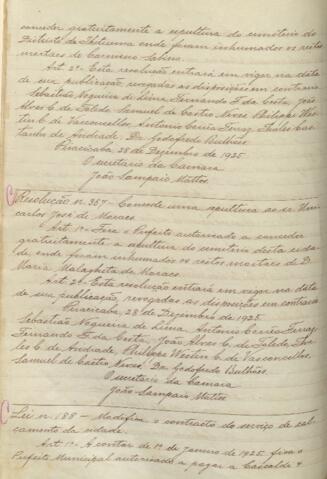 conceder gratuitamente a sepultura do cemiterio do
Districto de Ibitiruna onde foram inhumados os restos
mortaes de Carmino Sabino.
Art. 2º Esta resolução entrará em vigor na data
de sua publicação, revogadas as disposições em contrario
Sebastião Nogueira de Lima, Fernando F. da Costa, João
Alves C. de Toledo, Samuel de Castro Neves, Philippe Wes-
tin C. de Vasconcellos, Antonio Corrêa Ferraz, Thales Cas-
tanho de Andrade, Dr. Godofredo Bulhões.
Piracicaba, 28 de Dezembro de 1925
O secretario da Camara
João Sampaio Mattos
Resolução n. 367 - Concede uma sepultura ao sr.
carlos José de Moraes
Art. 1º Fica o Prefeito autorisado a conceder
gratuitamente a sepultura do cemiterio desta cida-
de onde foram inhumados os restos mortaes de D.
Maria de Moraes.
Art. 2º Esta resolução entrará em vigor na data
de sua publicação, revogadas as disposições em contrario
Piracicaba, 28 de Dezembro de 1925.
Sebastião Nogueira de Lima, Antonio Corrêa Ferraz,
Fernando F. da Costa, João Alves C. de Toledo, Tha-
les C. de Andrade, Philippe Westin C. de Vasconcellos,
Samuel de Castro Neves, Dr. Godofredo Bulhões.
O secretario da Camara
João Sampaio Mattos
Lei n. 188 - Modifica o contracto do serviço de cal-
çamento da cidade
Art. 1º A contar de 1º de janeiro de 1925 fica o
Prefeito Municipal autorisado a pagar a &